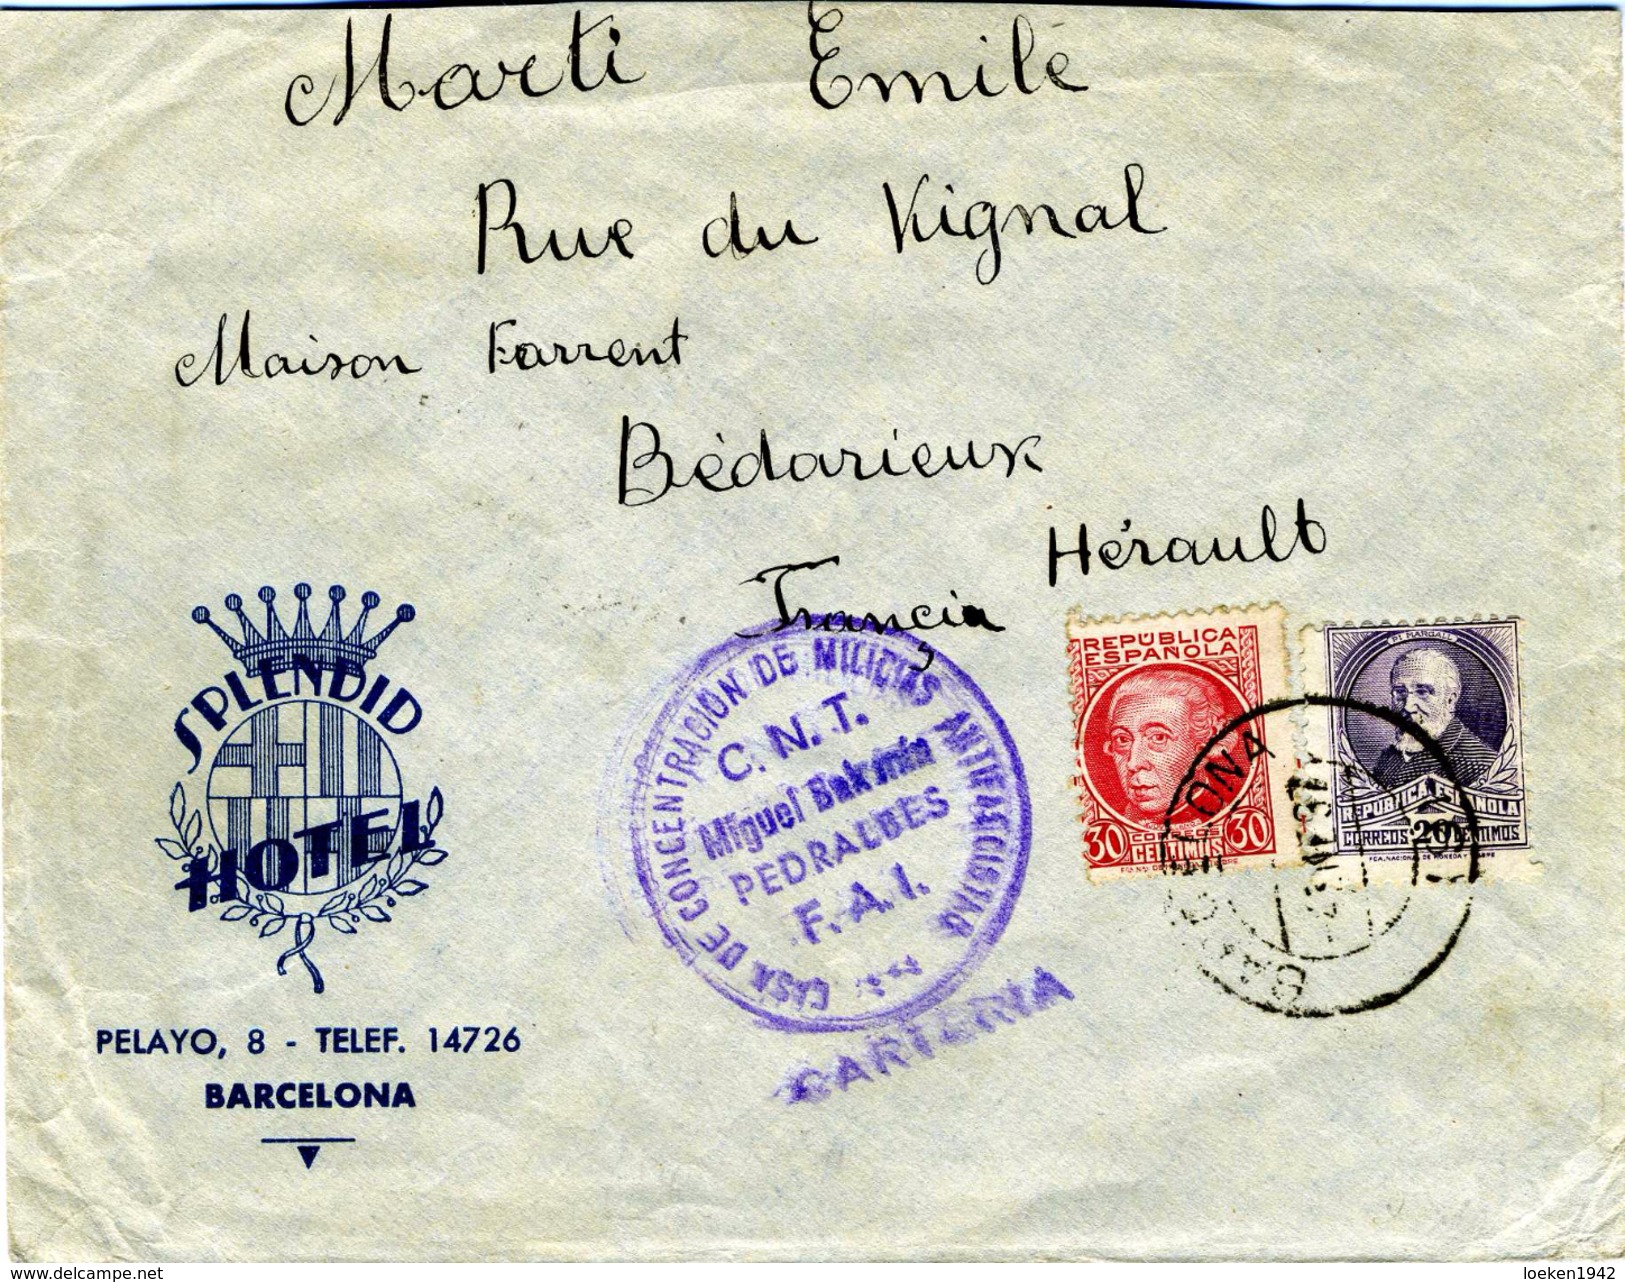 Marti Emile
Rue du Vignal
Maison Farrent
Bédarieux
Hérault
Francia
SPLENDID
HOTEL
PELAYO, 8 - TELEF. 14726
BARCELONA
CASA DE CONCENTRACION DE MILICIAS ANTIFASCISTAS
C.N.T.
Miguel Bakunin
PEDRALBES
F.A.I.
CARTERIA
REPÚBLICA
ESPAÑOLA
30 CORREOS 30
CENTIMOS
PI MARGALL
REPUBLICA ESPAÑOLA
CORREOS 20 CENTIMOS
FCA. NACIONAL DE MONEDA Y TIMBRE
delcampe.net
loeken1942